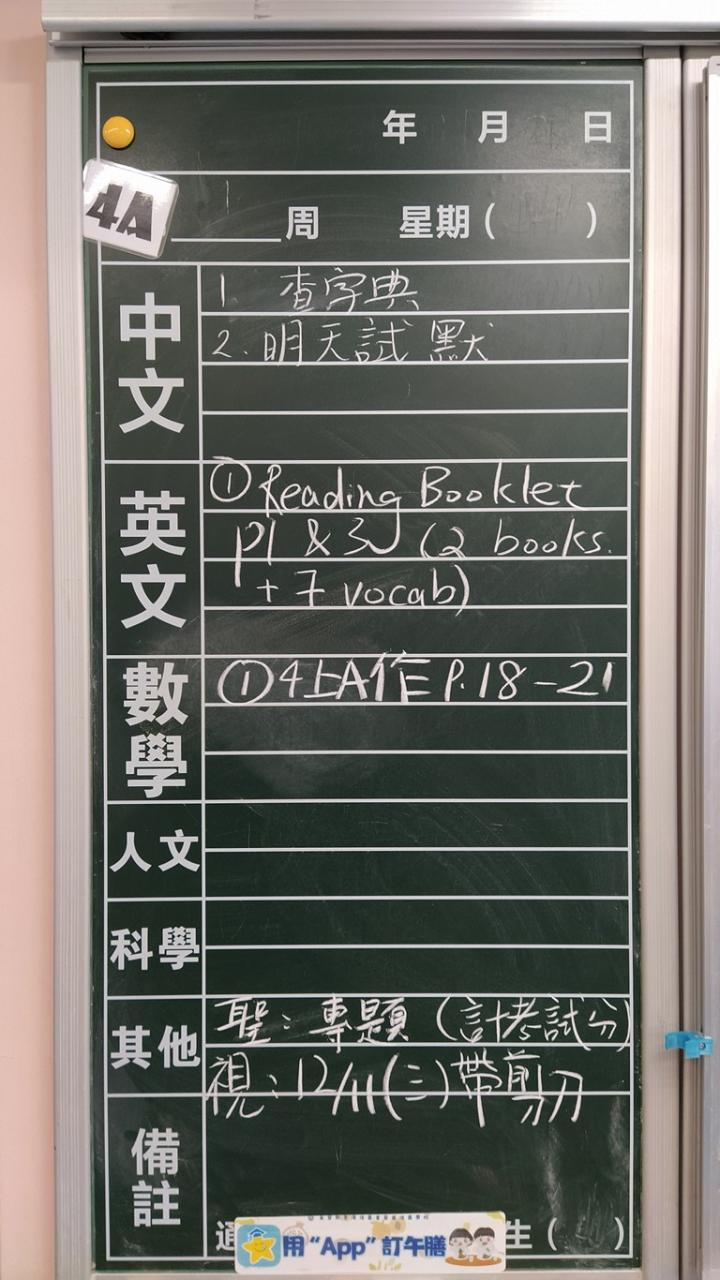 年 月 日
4A
周 星期( )
中文
1. 查字典
2. 明天試默
英文
① Reading Booklet
p1 & 3 (2 books.
+ 7 vocab)
數學
①4上A作 P.18-21
人文
科學
其他
聖:專題(計考試分)
視:12/11(三)帶剪刀
備註
通 生( )
用“App”訂午膳